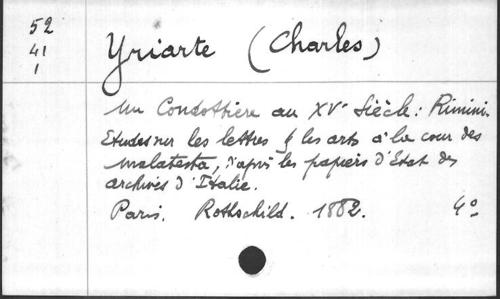 52
41
1
Yriarte (Charles)
Un Condottière au XVe Siècle: Rimini.
Etudes sur les lettres & les arts à la cour des
Malatesta, d'après les papiers d'Etat des
archives d'Italie.
Paris. Rothschild. 1882. 4º